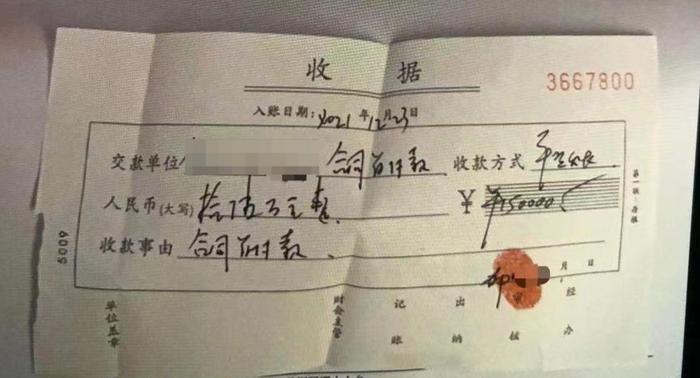 收 据
3667800
入账日期：2021 年 12 月 23 日
交款单位 合同首付款 收款方式
人民币(大写) 拾伍万元整 ￥ ￥150000
收款事由 合同首付款
月 日
5009
第一联：存根
单位盖章 财会主管 记账 出纳 审核 经办